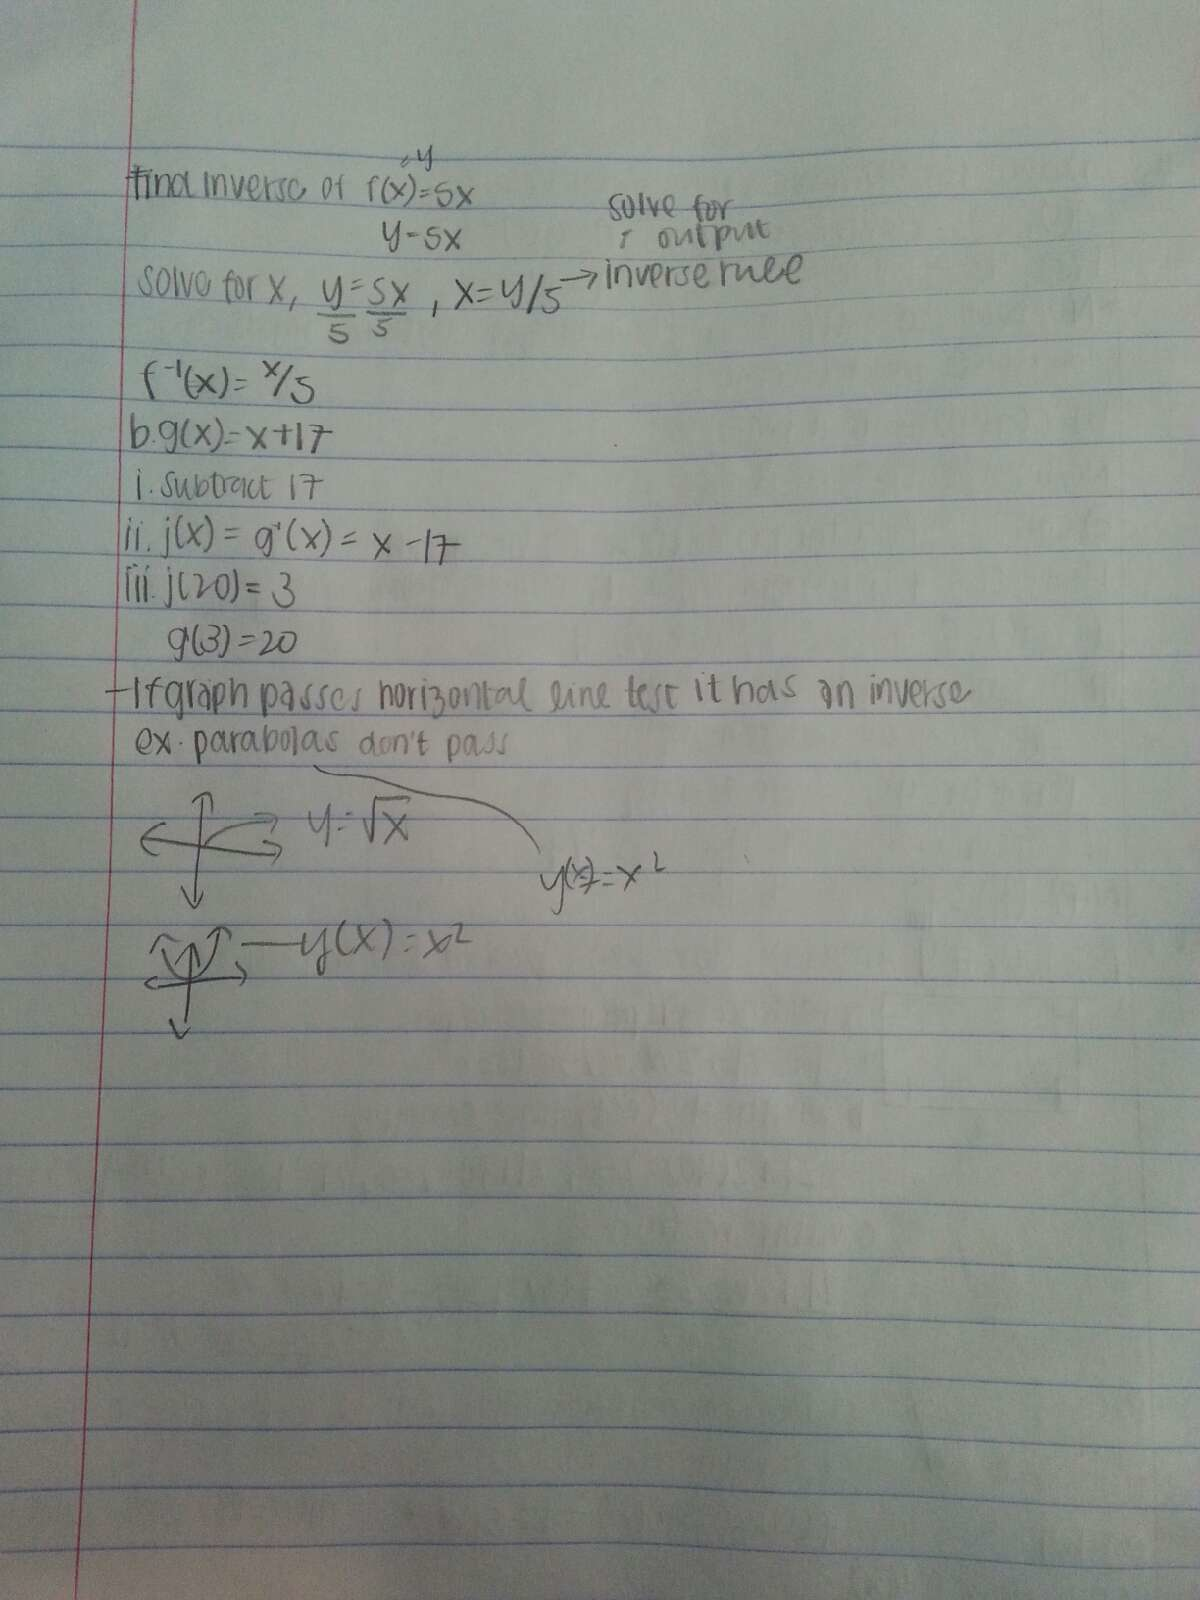 =y
find inverse of f(x)=5x
y=5x
solve for
output
solve for x, y/5=5x/5, x=y/5→inverse rule
f⁻¹(x)=x/5
b.g(x)=x+17
i. subtract 17
ii. j(x)=g⁻¹(x)=x-17
iii. j(20)=3
g(3)=20
-If graph passes horizontal line test it has an inverse
ex. parabolas don't pass
y=√x
y(x)=x²
y(x)=x²